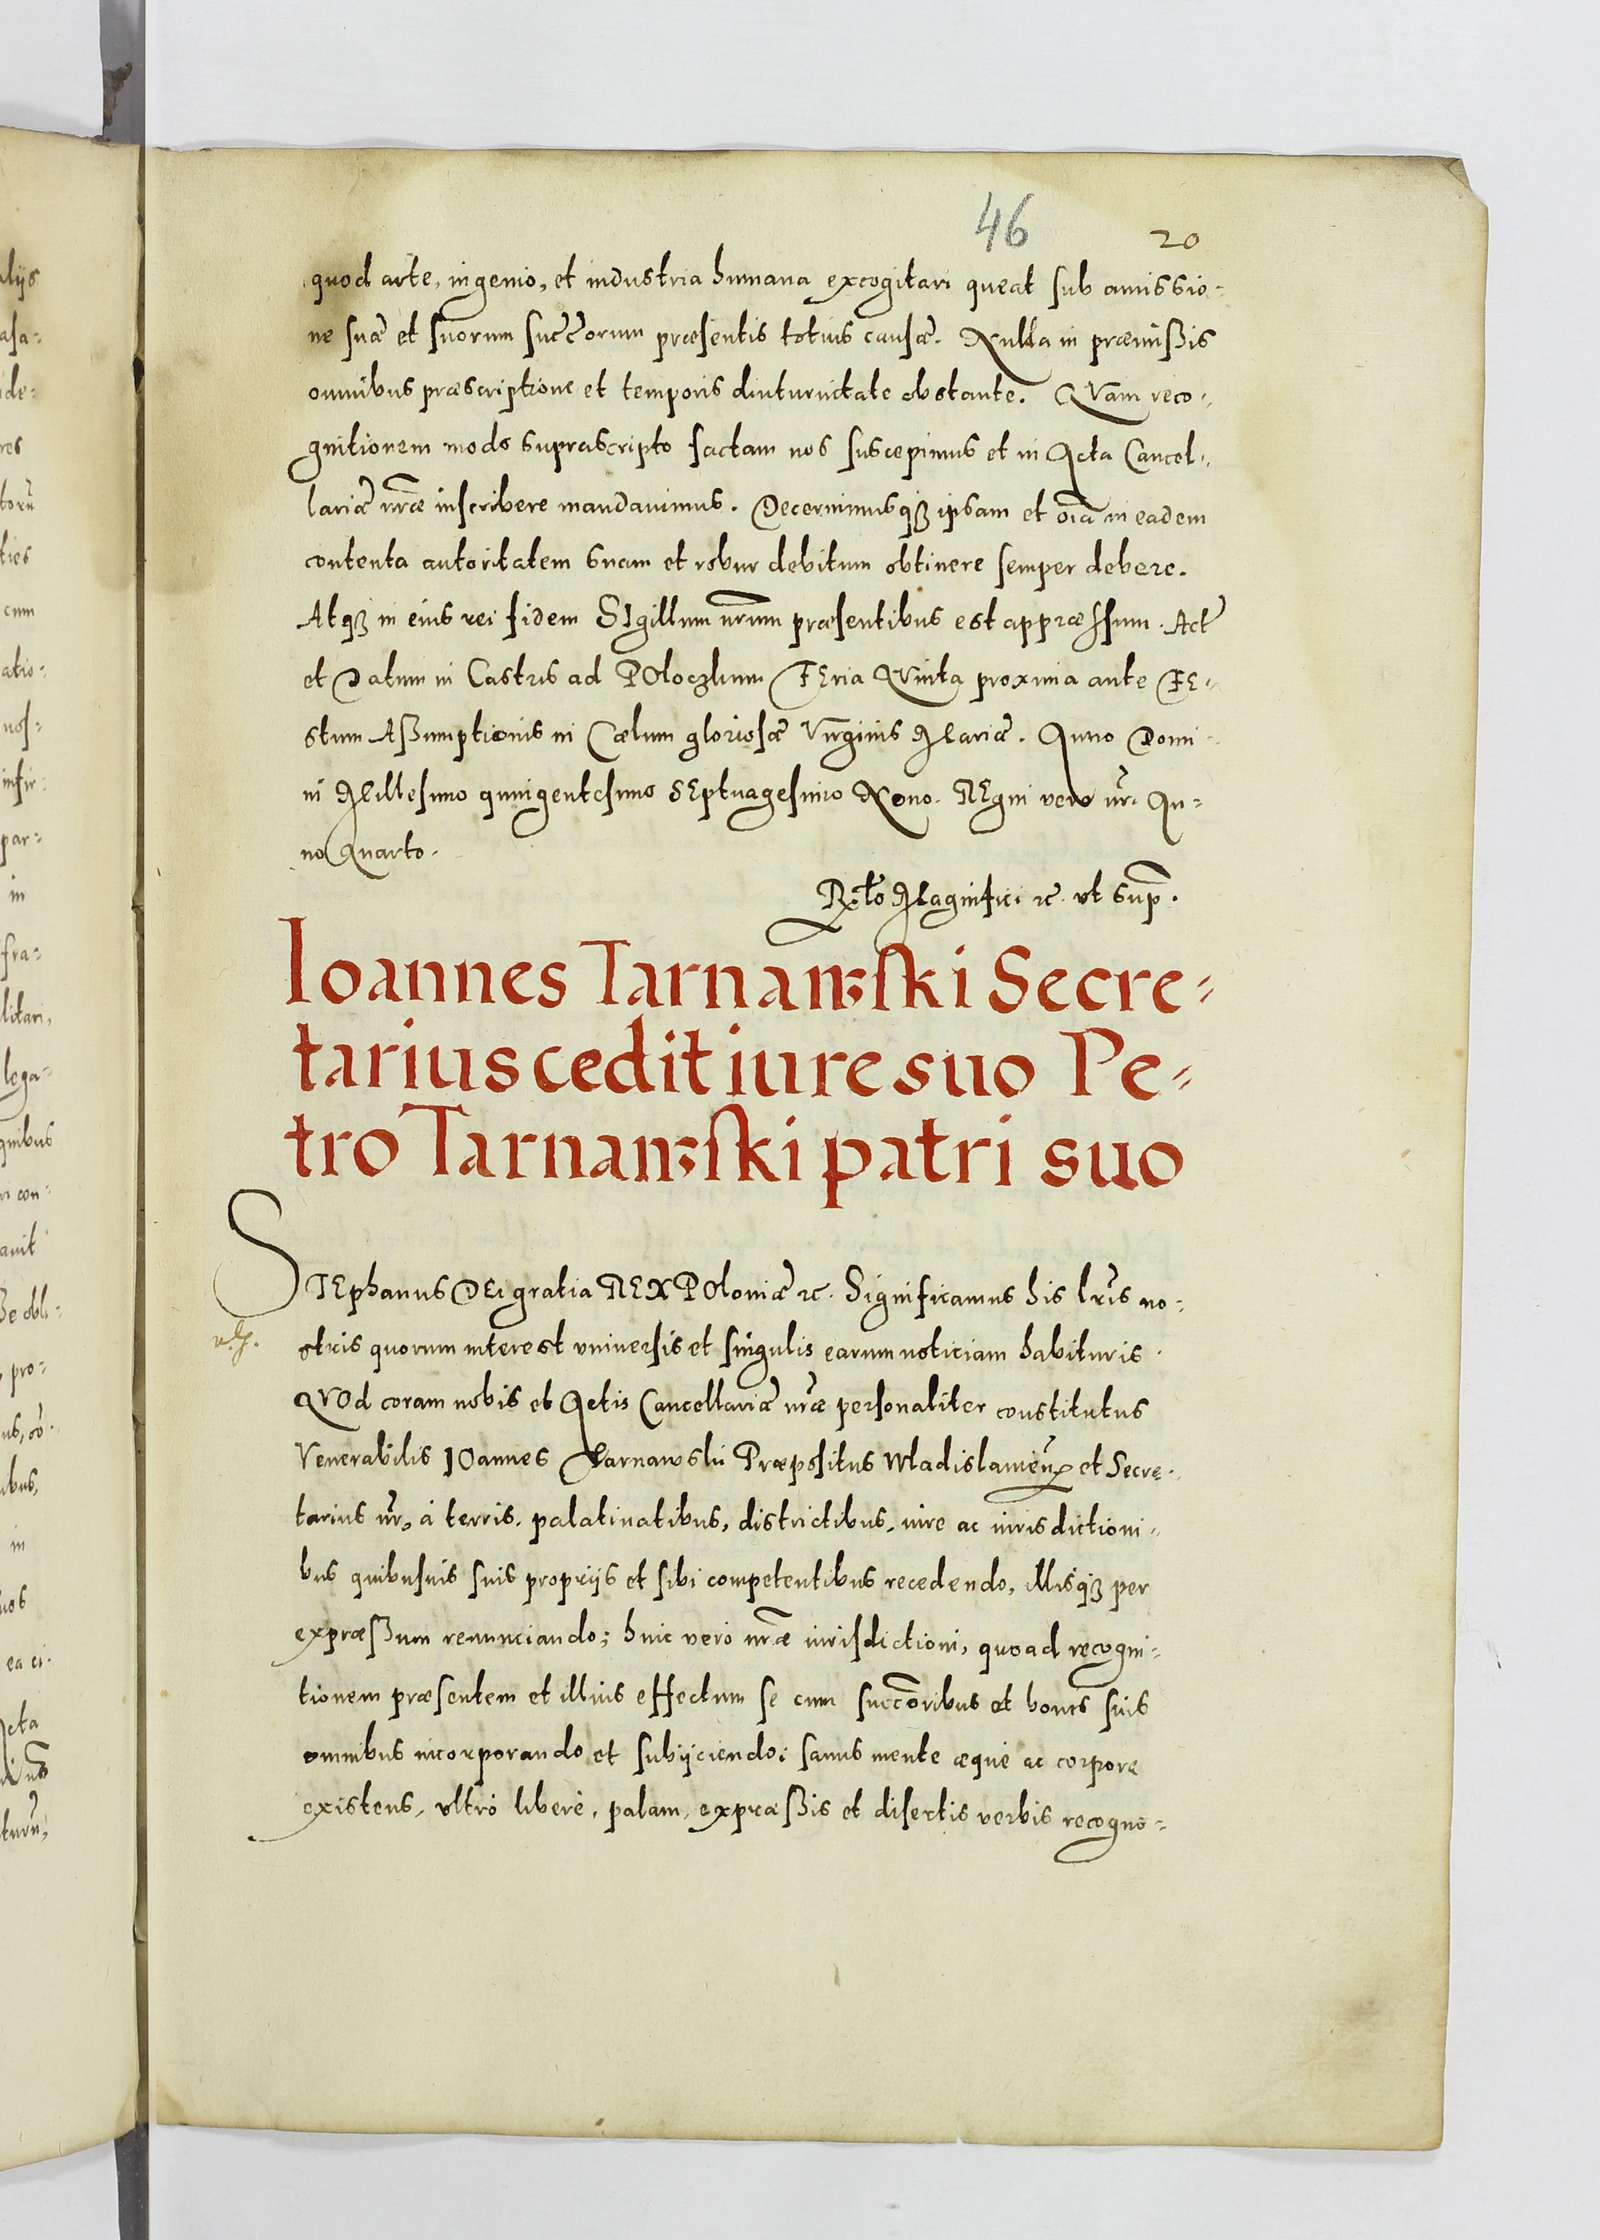 46 20
quod arte, ingenio, et industria humana excogitari queat sub amissio-
ne suæ et suorum succorum præsentis totius causæ. Nulla in præmißis
omnibus præscriptione et temporis diuturnitate obstante. QVam reco-
gnitionem modo suprascripto factam nos suscepimus et in Acta Cancel-
lariæ nræ inscribere mandauimus. Decernimusqȝ ipsam et oia in eadem
contenta autoritatem suam et robur debitum obtinere semper debere.
Atqȝ in eius rei fidem SIgillum nrum præsentibus est appræssum. Act
et Datum in Castris ad POloczkum FEria QVinta proxima ante FE-
stum Aßumptionis in Cælum gloriosæ Virginis Mariæ. Anno Domi-
ni Millesimo quingentesimo SEptuagesimo Nono. REgni vero nr. An-
no Quarto.
Rlto Magnifici ꝛc. vt sup.
Ioannes Tarnawski Secre-
tarius cedit iure suo Pe-
tro Tarnawski patri suo
STEphanus DEi gratia REX POloniæ ꝛc. Significamus his lris no-
stris quorum interest vniuersis et singulis earum noticiam habituris.
QVOd coram nobis et Actis Cancellariæ nræ personaliter constitutus
Venerabilis IOannes Tarnawski Præpositus Wladislauien et Secre-
tarius nr, à terris, palatinatibus, districtibus, iure ac iurisdictioni-
bus quibusuis suis proprijs et sibi competentibus recedendo, illisqȝ per
expræßum renunciando; huic vero nræ iurisdictioni, quoad recogni-
tionem præsentem et illius effectum se cum succoribus et bonis suis
omnibus incorporando et subijciendo; sanus mente æque ac corpore
existens, vltrò liberè, palam, expræßis et disertis verbis recogno-